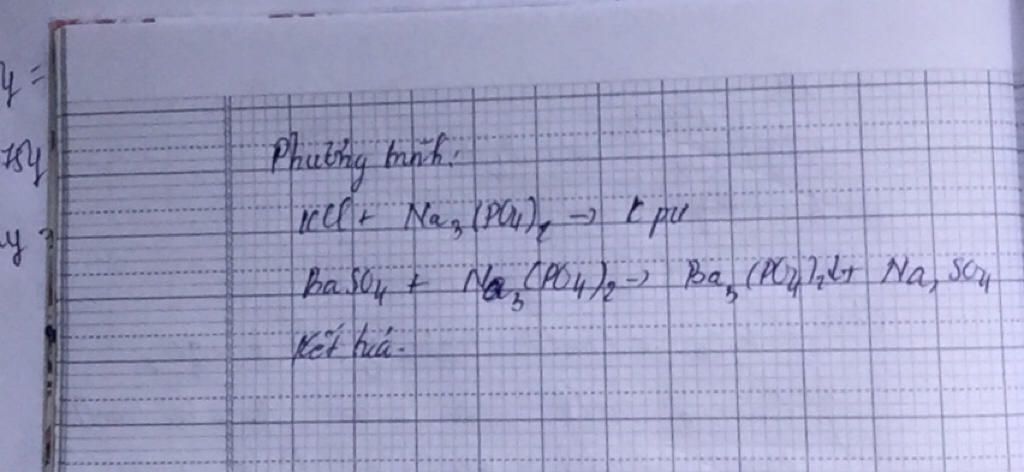 y =
78y
y =
Phương trình:
KCl + Na₃(PO₄)₂ → k pứ
BaSO₄ + Na₃(PO₄)₂ → Ba₃(PO₄)₂↓ + Na₂SO₄
Kết tủa.